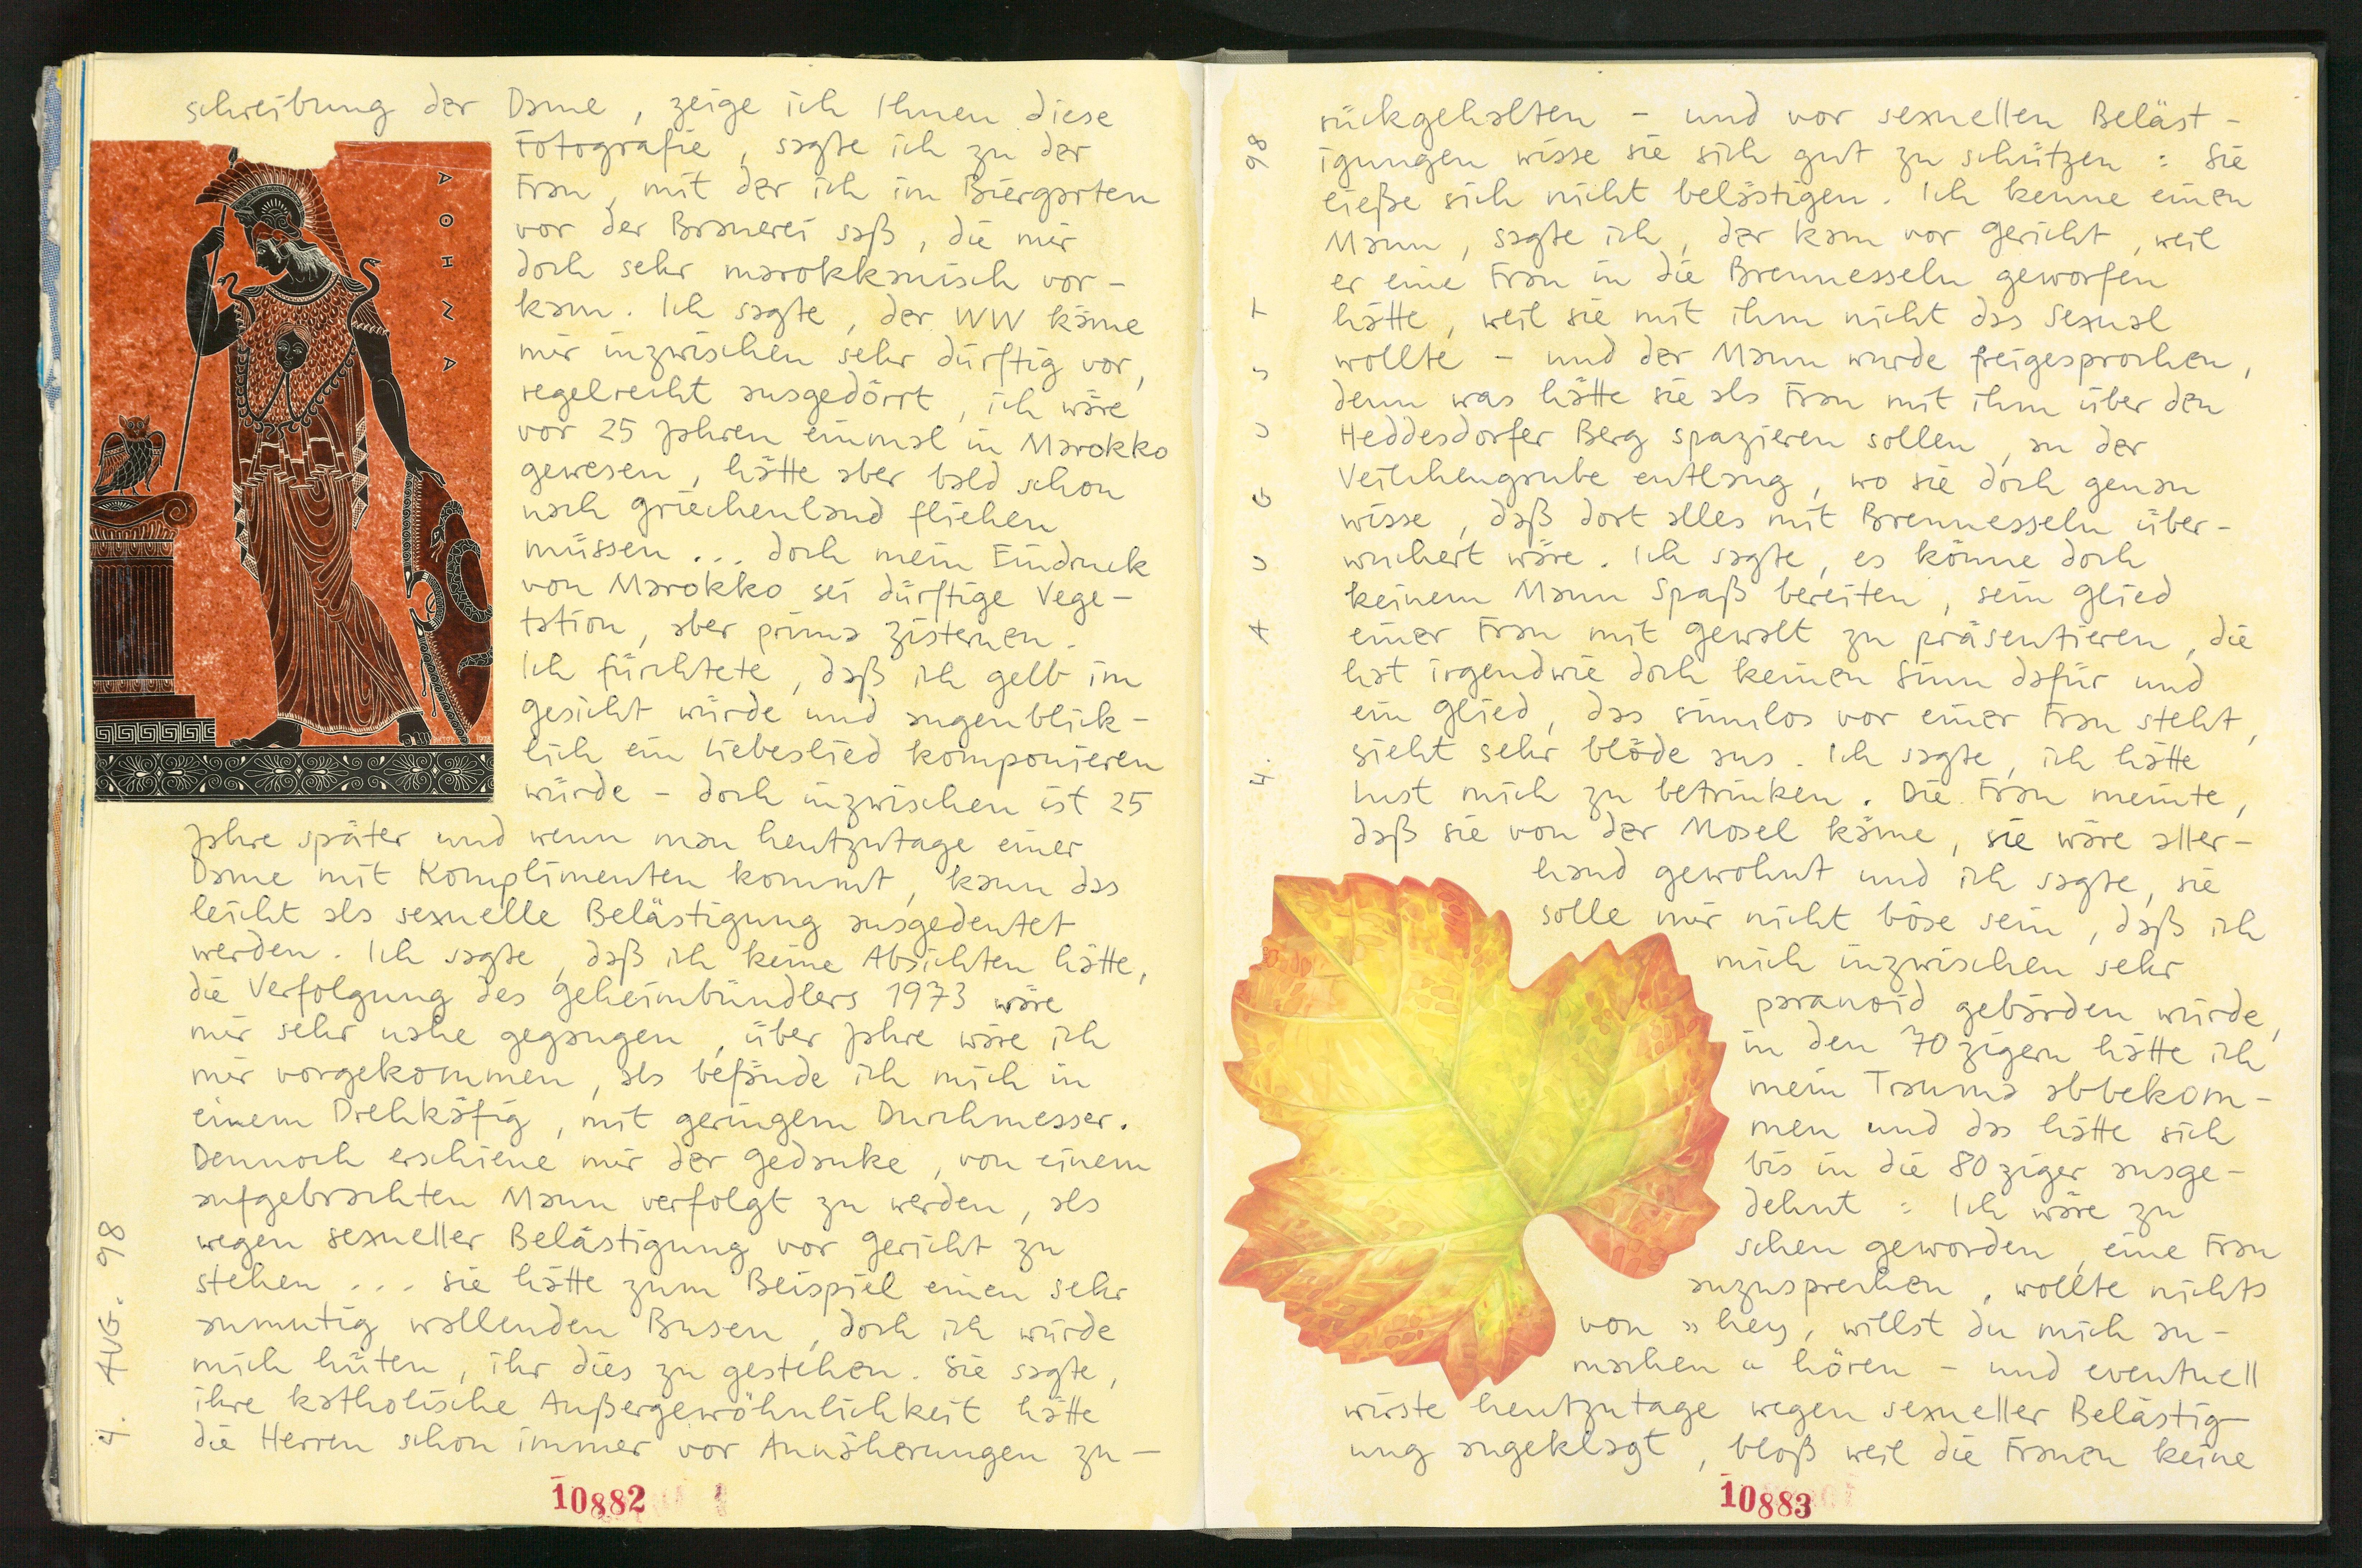 schreibung der Dame, zeige ich Ihnen diese
Fotografie, sagte ich zu der
Frau, mit der ich im Biergarten
vor der Brauerei saß, die mir
doch sehr marokkanisch vor-
kam. Ich sagte, der WW käme
mir inzwischen sehr dürftig vor,
regelrecht ausgedörrt, ich wäre
vor 25 Jahren einmal in Marokko
gewesen, hätte aber bald schon
nach Griechenland fliehen
müssen... doch mein Eindruck
von Marokko sei dürftige Vege-
tation, aber prima Zisternen.
Ich fürchtete, daß ich gelb im
Gesicht würde und augenblick-
lich ein Liebeslied komponieren
würde - doch inzwischen ist 25
Jahre später und wenn man heutzutage einer
Dame mit Komplimenten kommt, kann das
leicht als sexuelle Belästigung ausgedeutet
werden. Ich sagte, daß ich keine Absichten hätte,
die Verfolgung des Geheimbündlers 1973 wäre
mir sehr nahe gegangen, über Jahre wäre ich
mir vorgekommen, als befände ich mich in
einem Drehkäfig, mit geringem Durchmesser.
Dennoch erschiene mir der Gedanke, von einem
aufgebrachten Mann verfolgt zu werden, als
wegen sexueller Belästigung vor Gericht zu
stehen... sie hätte zum Beispiel einen sehr
anmutig wallenden Busen, doch ich würde
mich hüten, ihr dies zu gestehen. Sie sagte,
ihre katholische Außergewöhnlichkeit hätte
die Herren schon immer vor Annäherungen zu-
ΑΘΗΝΑ
4. AUG. 98
10882
rückgehalten - und vor sexuellen Beläst-
igungen wisse sie sich gut zu schützen: Sie
ließe sich nicht belästigen. Ich kenne einen
Mann, sagte ich, der kam vor Gericht, weil
er eine Frau in die Brennesseln geworfen
hätte, weil sie mit ihm nicht das Sexual
wollte - und der Mann wurde freigesprochen,
denn was hätte sie als Frau mit ihm über den
Heddesdorfer Berg spazieren sollen, an der
Veilchengrube entlang, wo sie doch genau
wisse, daß dort alles mit Brennesseln über-
wuchert wäre. Ich sagte, es könne doch
keinem Mann Spaß bereiten, sein Glied
einer Frau mit Gewalt zu präsentieren, die
hat irgendwie doch keinen Sinn dafür und
ein Glied, das sinnlos vor einer Frau steht,
sieht sehr blöde aus. Ich sagte, ich hätte
Lust mich zu betrinken. Die Frau meinte,
daß sie von der Mosel käme, sie wäre aller-
hand gewohnt und ich sagte, sie
solle mir nicht böse sein, daß ich
mich inzwischen sehr
paranoid gebärden würde,
in den 70zigern hätte ich
mein Trauma abbekom-
men und das hätte sich
bis in die 80ziger ausge-
dehnt: Ich wäre zu
scheu geworden, eine Frau
anzusprechen, wollte nichts
von »hey, willst du mich an-
machen« hören - und eventuell
wirste heutzutage wegen sexueller Belästig-
ung angeklagt, bloß weil die Frauen keine
4. AUGUST 98
10883